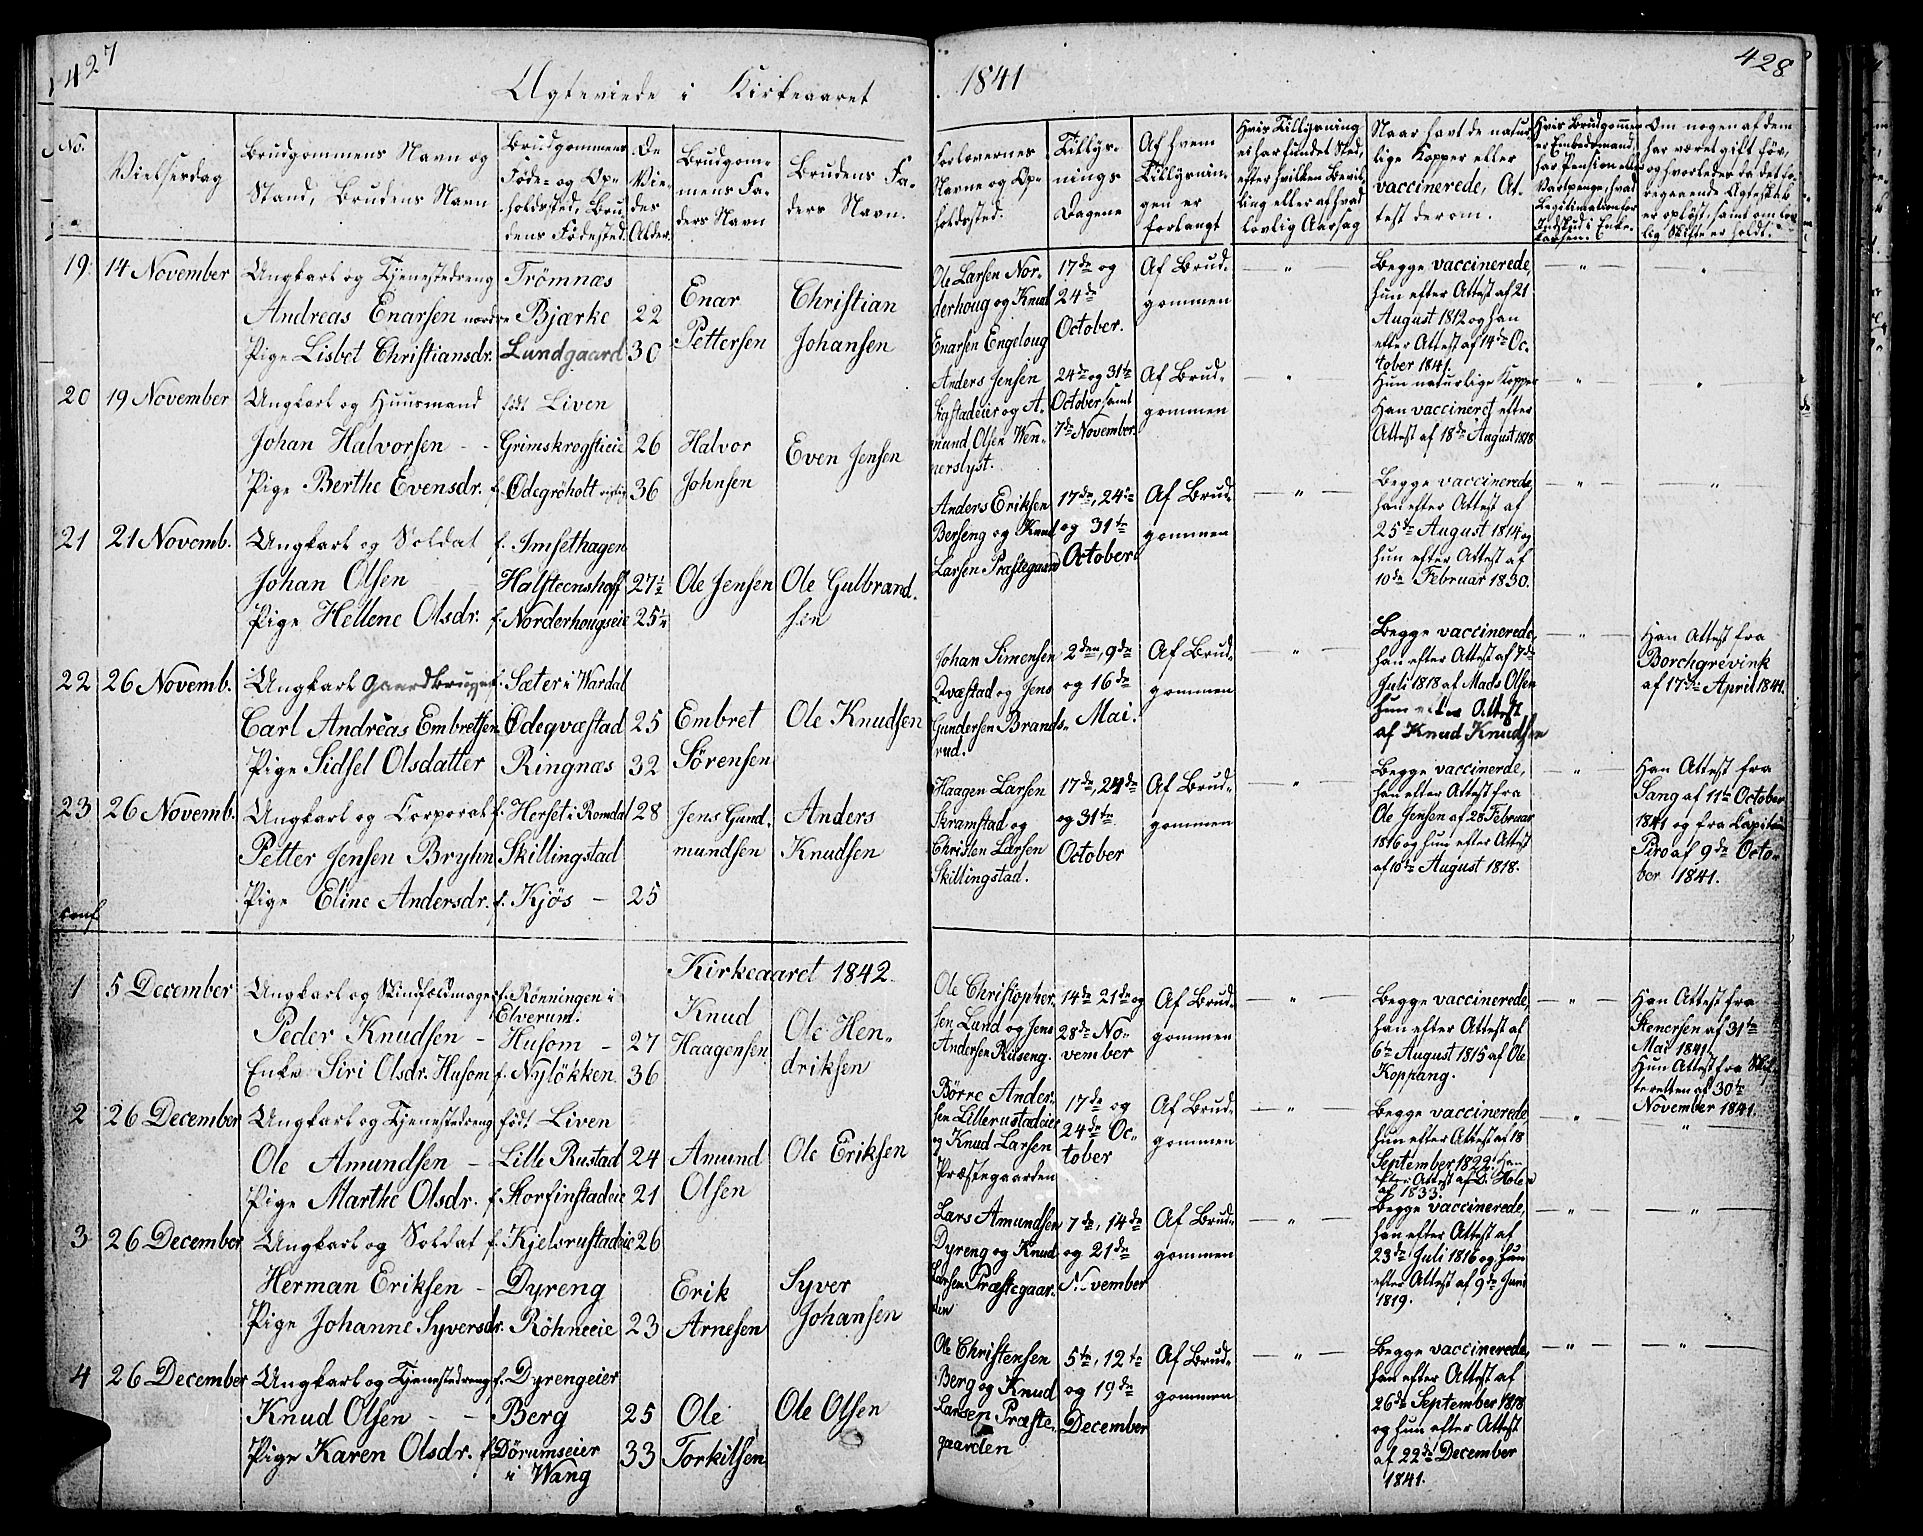 427
Ægteviede i Kirkeaaret
No.
Vielsesdag
Brudgommens Navn og
Stand, Brudens Navn
Brudgommens
Føde- og Op-
holdssted, Bru-
dens Fødested.
De
Vie-
des
Alder.
Brudgom-
mens Fa-
ders Navn
Brudens Fa-
ders Navn.
19. 14 November Ungkarl og Tjenestedreng Trømnæs
Andreas Enarsen nordre Bjærke 22 Enar Christian
Pige Lisbet Christiansdr. Lundgaard 30 Pettersen Johansen
20 19 November Ungkarl og Huusmand født Liven
Johan Halvorsen - - Grimskrogsteie 26 Halvor Even Jensen
Pige Berthe Evensdr. f. Ødegröholt 36 Johnsen
21 21 Novemb. Ungkarl og Soldat f. Imsethagen
Johan Olsen Halsteenshoff 27½ Ole Jensen Ole Gulbrand-
Pige Hellene Olsdr. f. Norderhougseie 25¼ sen
22 26 Novemb. Ungkarl Gaardbruger f. Sæter i Wardal
Carl Andreas Embretsen Ødeqvæstad 25 Embret Ole Knudsen
Pige Sidsel Olsdatter Ringnæs 32 Sörensen
23 26 Novemb. Ungkarl og Corporal f. Herset i Romdal 28 Jens Gund- Anders
Petter Jensen Bryhn Skillingstad mundsen Knudsen
Pige Eline Andersdr. f. Kjøs - 25
Kirkeaaret 1842.
1 5 December Ungkarl og Skindfeldmager f. Rønningen i
Elverum.
Peder Knudsen - Husom - 27 Knud Ole Hen-
Enke Siri Olsdr. Husom f. Nyløkken 36 Haagensen driksen
2 26 December Ungkarl og Tjenestedreng født Liven
Ole Amundsen - Lille Rustad 24 Amund Ole Eriksen
Pige Marthe Olsdr. f. Korfinstadeie 21 Olsen
3 26 December Ungkarl og Soldat f. Kjelsrustadeie 26
Herman Eriksen - Dyreng Erik Syver
Pige Johanne Syversdr. Röhneeie 23 Arnesen Johansen
4 26 December Ungkarl og Tjenestedreng f. Dyrengeier
Knud Olsen - - Berg 25 Ole Ole Olsen
Pige Karen Olsdr. f. Dörumseier 33 Torkilsen
i Wang
1841
428
Forlovernes
Navne og Op-
holdssted.
Tillys-
nings
Dagene
Af hvem
Tillysnin-
gen er
forlangt
Hvis Tillysning
ei har fundet Sted,
efter hvilken Bevil-
ling eller af hvad
lovlig Aarsag
Naar havt de natur-
lige Kopper eller
vaccinerede, At-
test derom.
Hvis Brudgommen
er Embedsmand,
har Pension eller
Vartpenge, hvad
Legitimation for
Indskud i Enke-
kassen.
Om nogen af dem
har været gift før,
og hvorledes da det fo-
regaaende Ægteskab
er opløst, samt om lov-
lig Skifte er holdt.
Ole Larsen Nor-
derhoug og Knud
Enarsen Engeloug
17de og
24de
October.
Af Brud-
gommen
Begge vaccinerede,
hun efter Attest af 21
August 1812 og han
efter Attest af 14de Oc-
tober 1841.
Anders Jensen
Kastadeier og A-
mund Olsen Wen-
nerslyst.
24de og 31te
October samt
7de November.
Af Brud-
gommen
Hun naturlige Kopper
Han vaccineret efter
Attest af 18de August 1818
Anders Eriksen
Berseng og Knud
Larsen Præstegaard
17de, 24de
og 31te
October
Af Brud-
gommen
Begge vaccinerede,
han efter Attest af
25de August 1814 og
hun efter Attest af
10de Februar 1830.
Johan Simensen
Qvæstad og Jens
Gundersen Brands-
rud.
2den, 9de
og 16de
Mai.
Af Brud-
gommen
Begge vaccinerede,
han efter Attest af 7de
Juli 1818 af Mads Olsen
hun efter Attest
af Knud Knudsen
Han Attest fra
Borchgrevink
af 17de April 1841.
Haagen Larsen
Skramstad og
Christen Larsen
Skillingstad.
17de, 24de
og 31te
October
Af Brud-
gommen
Begge vaccinerde,
han efter Attest fra
Ole Jensen af 28 Februar
1816 og hun efter Attest
af 10de August 1818.
Han Attest fra
Sang af 11te October
1841 og fra Capitain
Piro af 9de Octo-
ber 1841.
Ole Christopher-
sen Lund og Jens
Andersen Rüseng.
14de 21de og
28de No-
vember
Af Brud-
gommen
Begge vaccinerede,
han efter Attest af
6te August 1815 af Ole
Koppang.
Han Attest fra
Stenersen af 31te
Mai 1841.
Hun Attest fra Skif-
teretten af 30te
November 1841.
Börre Ander-
sen Lillerustadeie
og Knud Larsen
Præstegaarden
17de og
24de Oc-
tober
Af Brud-
gommen
Begge vaccinerede,
hun efter Attest af 18
September 1822. Han
efter Attest af D. Holen
af 1833.
Lars Amundsen
Dyreng og Knud
Larsen Præstegaar-
den
7de, 14de
og 21de
November
Af Brud-
gommen
Begge vaccinerede,
han efter Attest af
23de Juli 1816 og hun
efter Attest af 9de Juni
1819.
Ole Christensen
Berg og Knud
Larsen Præste-
gaarden
5te, 12te
og 19de
December
Af Brud-
gommen
Begge vaccinerede,
han efter Attest af
26de September 1818
og hun efter Attest
af 22de December
1841.